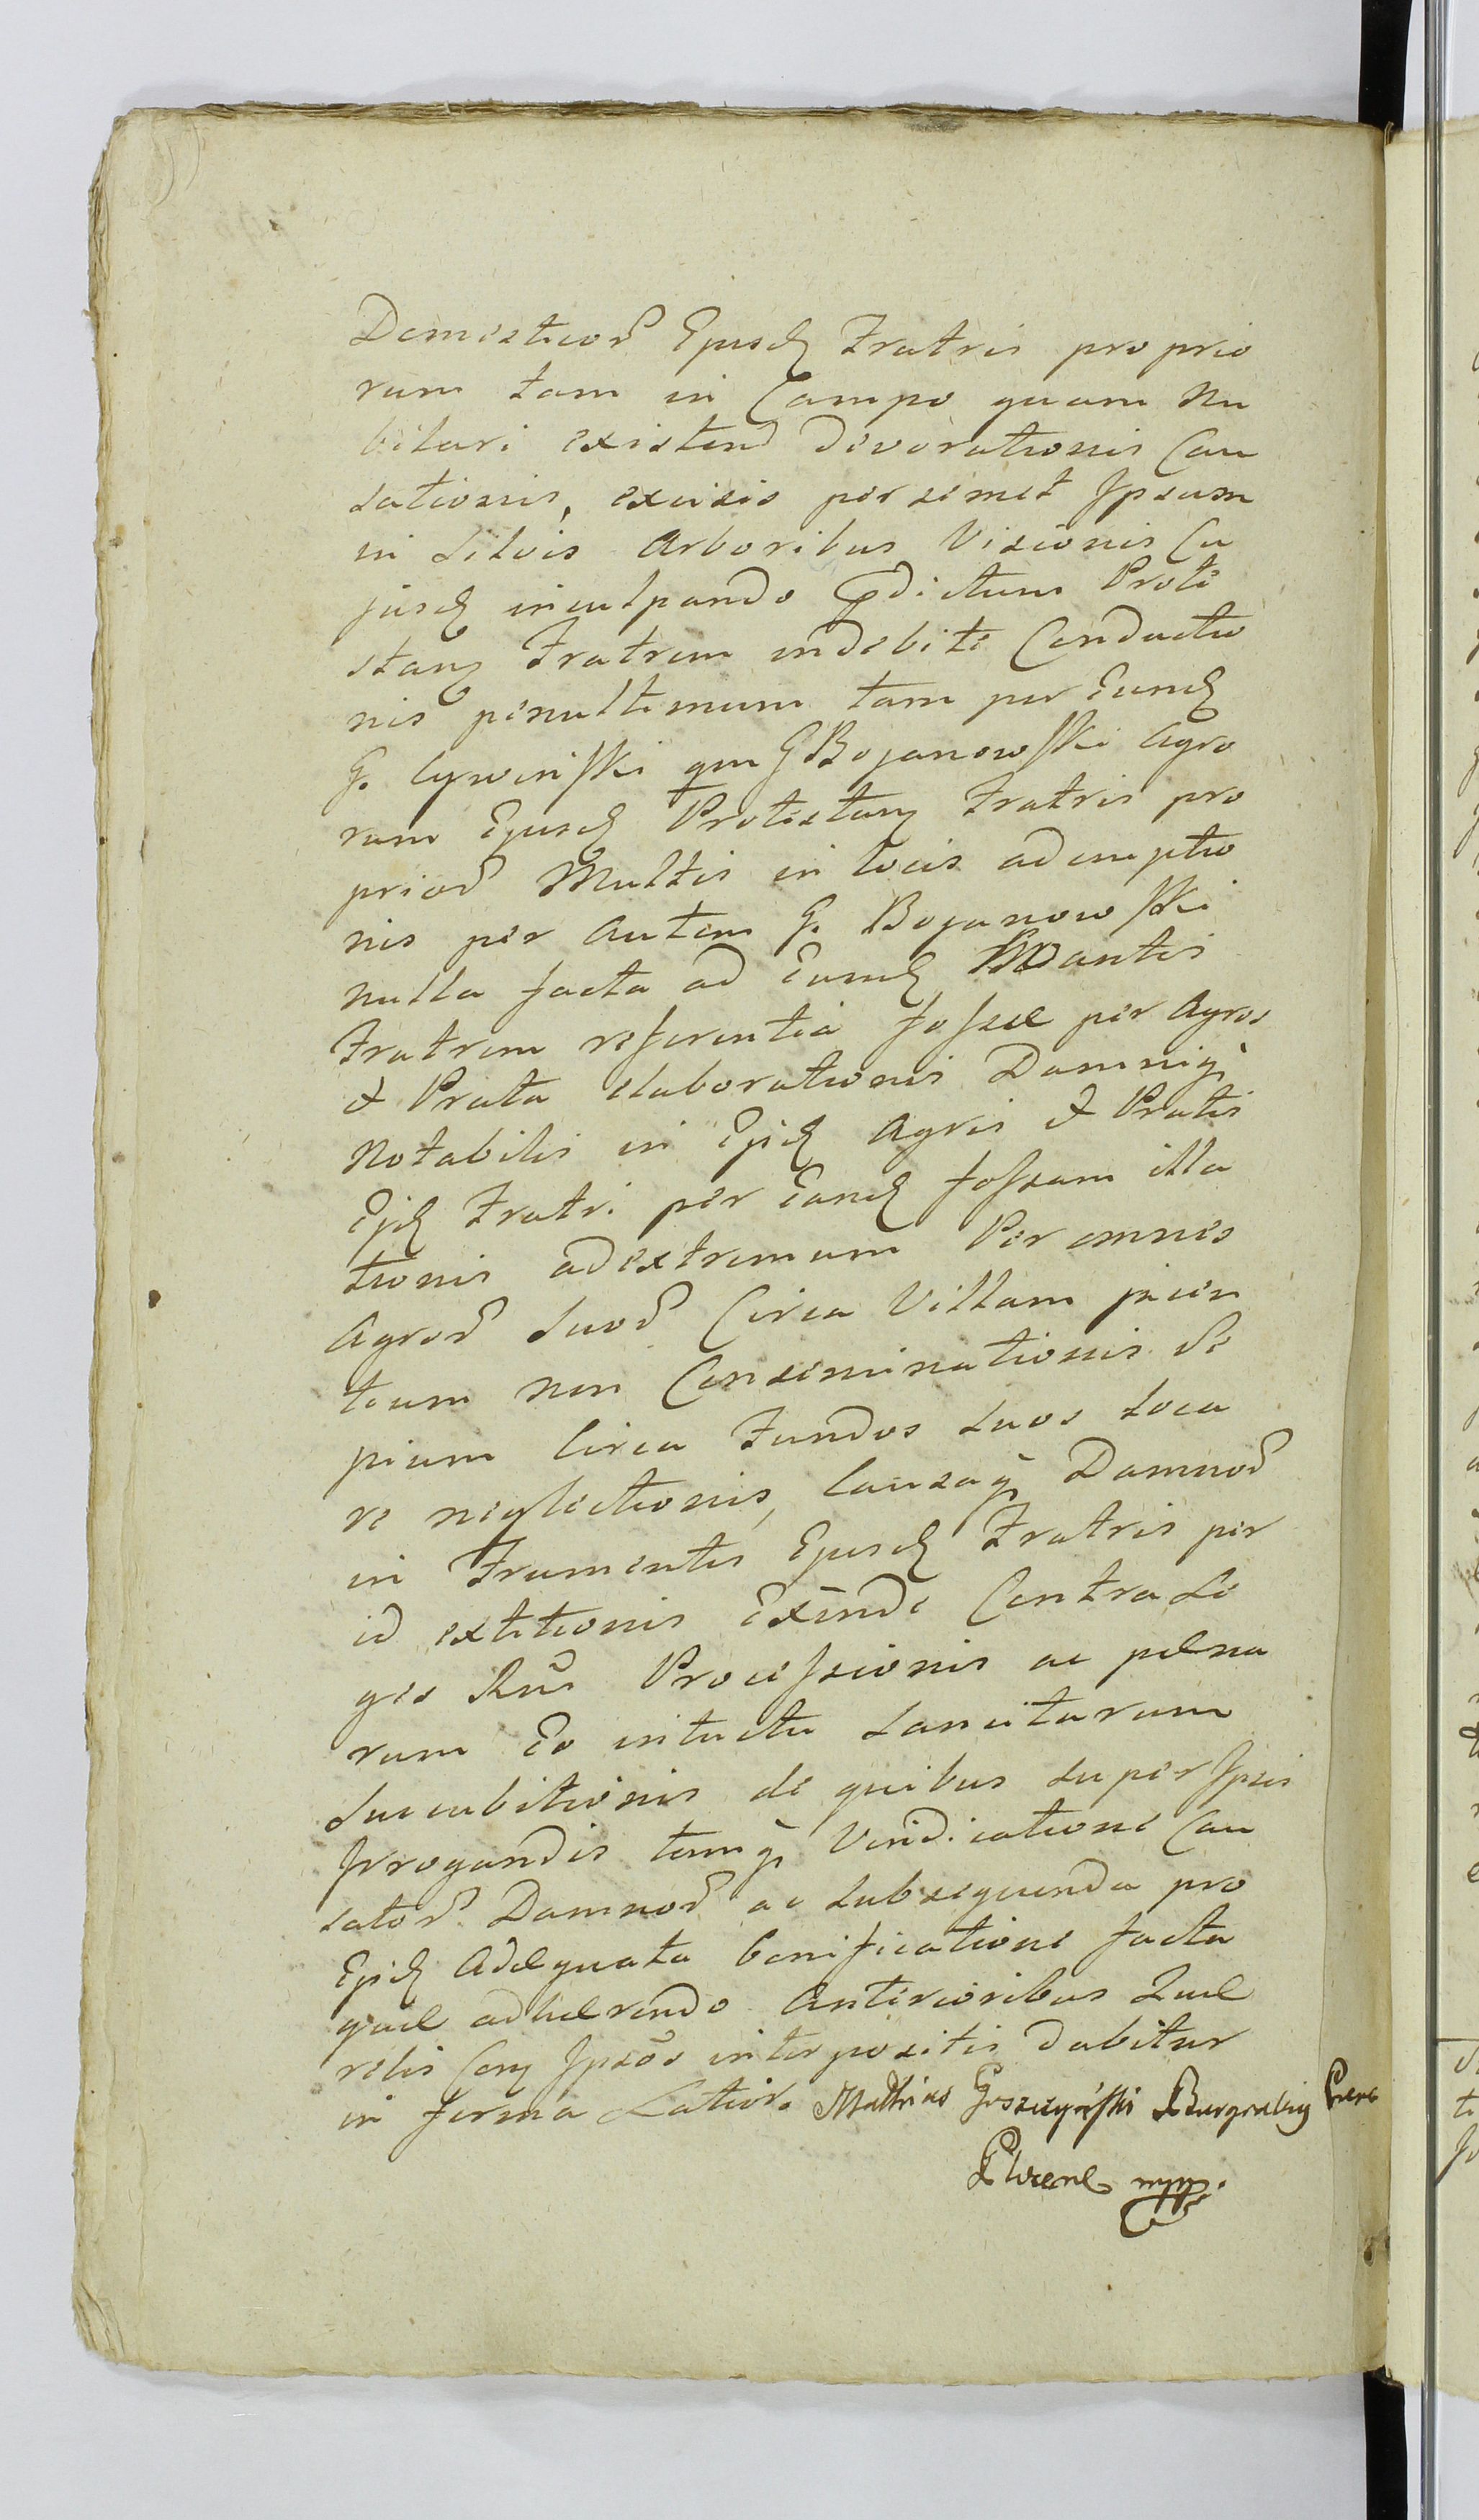 Domesticor Ejusd Fratris proprio
rum tam in Campo quam Nu
bilari existend devorationis Cau
sationis, excisis per semet Ipsum
in Silvis Arboribus Visionis Cu
jusd inculpando Pdictum Prote
stang Fratrem indebite Conductio
nis penultimum tam per Eund
G. Cywinski qm G Bojanowski Agro
rum Ejusd Protestang Fratris pro
prior Multis in locis ademptio
nis per autem G. Bojanowski
nulla facta ad Eund Mantis
Fratrem referentia fossae per Agros
& Prata elaborationis Damniq
Notabilis in Ejsd Agris & Pratis
Ejd Fratri per Eand fossam illa
tionis ad extremum Per omnes
Agror Suor Circa Villam jacen
tium non Conseminationis Se
pium Circa Fundos suos loca
re neglectionis, Causaq Damnor
in Frumentis Ejusd Fratris per
id extitionis Exinde Contra Le
ges Rni Processionis ac paena
rum Eo intuitu Sancitarum
Succubitionis de quibus super Ipsis
Irrogandis tumq Vindicatione Cau
sator Damnor ac subsequenda pro
Ejsd Adaequata bonificatione facta
quae adhaerendo Anterioribus Quae
relis Cong Ipsos interpositis dabitur
in forma Latiori. Mathias Goszczynski Burgrabig
mpp.